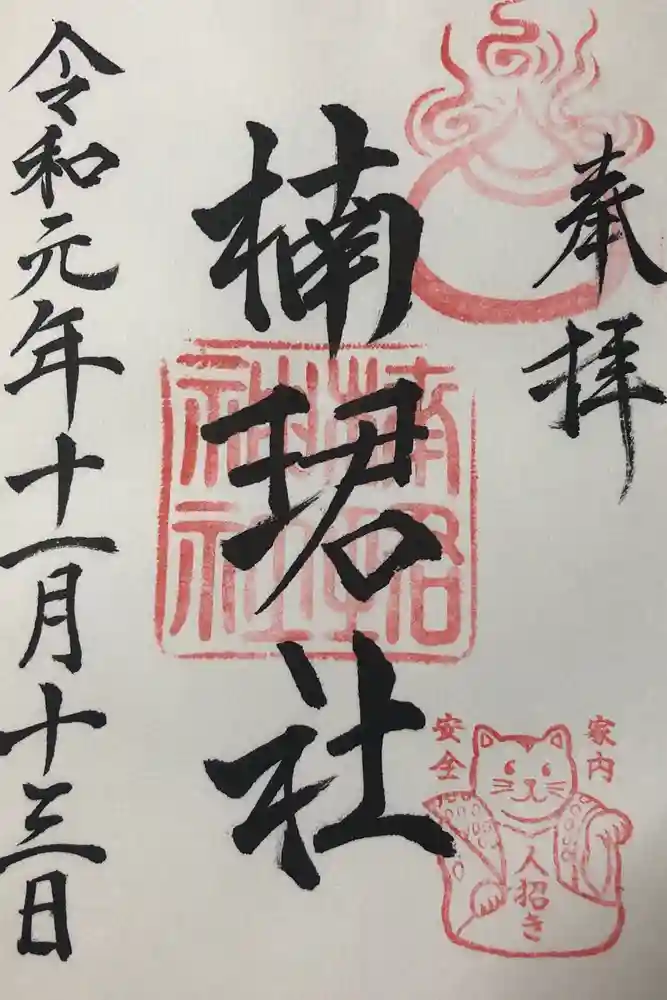 奉拝
楠珺社
令和元年十一月十三日
家内
安全
人招き